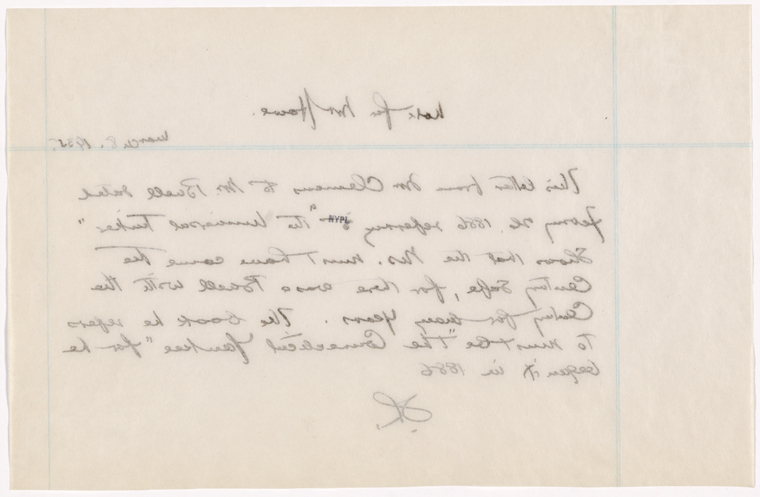 Note for Mr Howe.
March 8. 1935.
This letter from Mr Clemens to Mr. Buel date
1886 referring to "The Universal Tinker"
NYPL
Shows that the Ms. must have come the
Century Safe, for there was a Buel with the
Century for many years. The book he refers
to must be "The Connecticut Yankee" for he
began it in 1886